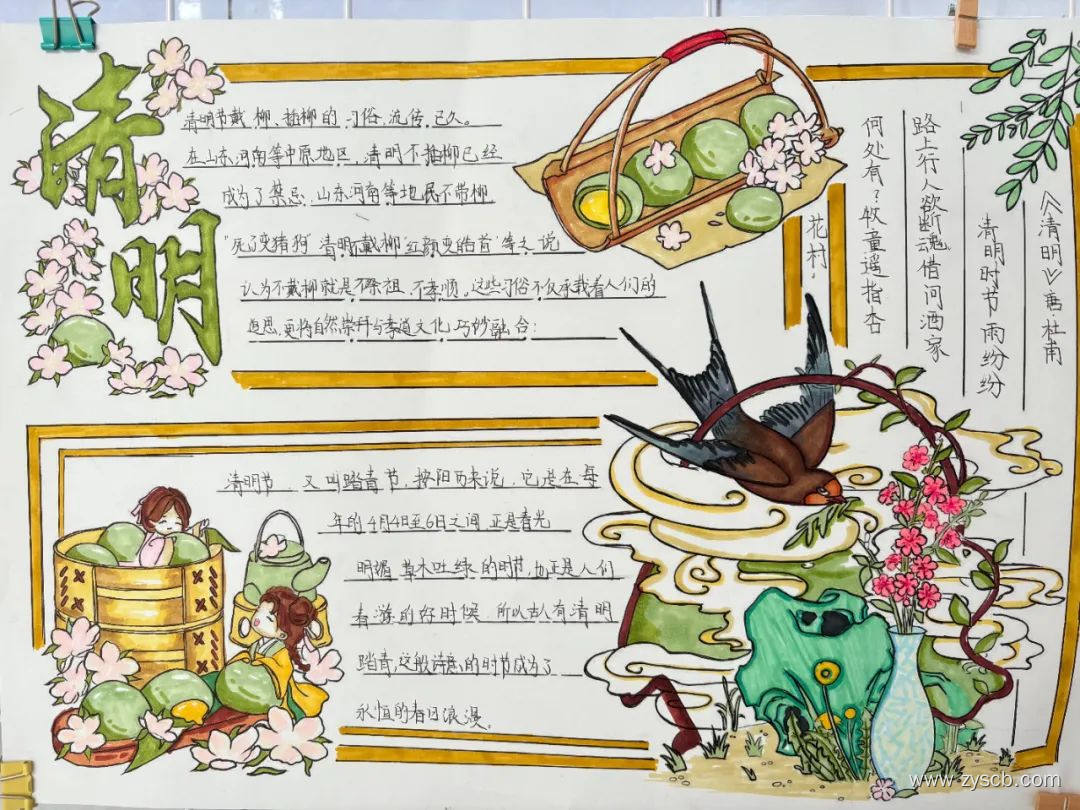 清明
清明节戴柳、插柳的习俗流传已久。
在山东河南等中原地区,清明不插柳已经
成为了禁忌,山东河南等地民不带柳
"死了变猪狗""清明不戴柳红颜变皓首"等之说
认为不戴柳就是不祭祖,不孝顺。这些习俗不仅承载着人们的
追思,更将自然崇拜与孝道文化巧妙融合:
《清明》唐·杜甫
清明时节雨纷纷
路上行人欲断魂借问酒家
何处有?牧童遥指杏
花村。
清明节,又叫踏青节,按阳历来说,它是在每
年的4月4日至6日之间,正是春光
明媚草木吐绿的时节,也正是人们
春游的好时候,所以古人有清明
踏青,这般诗意的时节成为了
永恒的春日浪漫。
www.zyscb.com